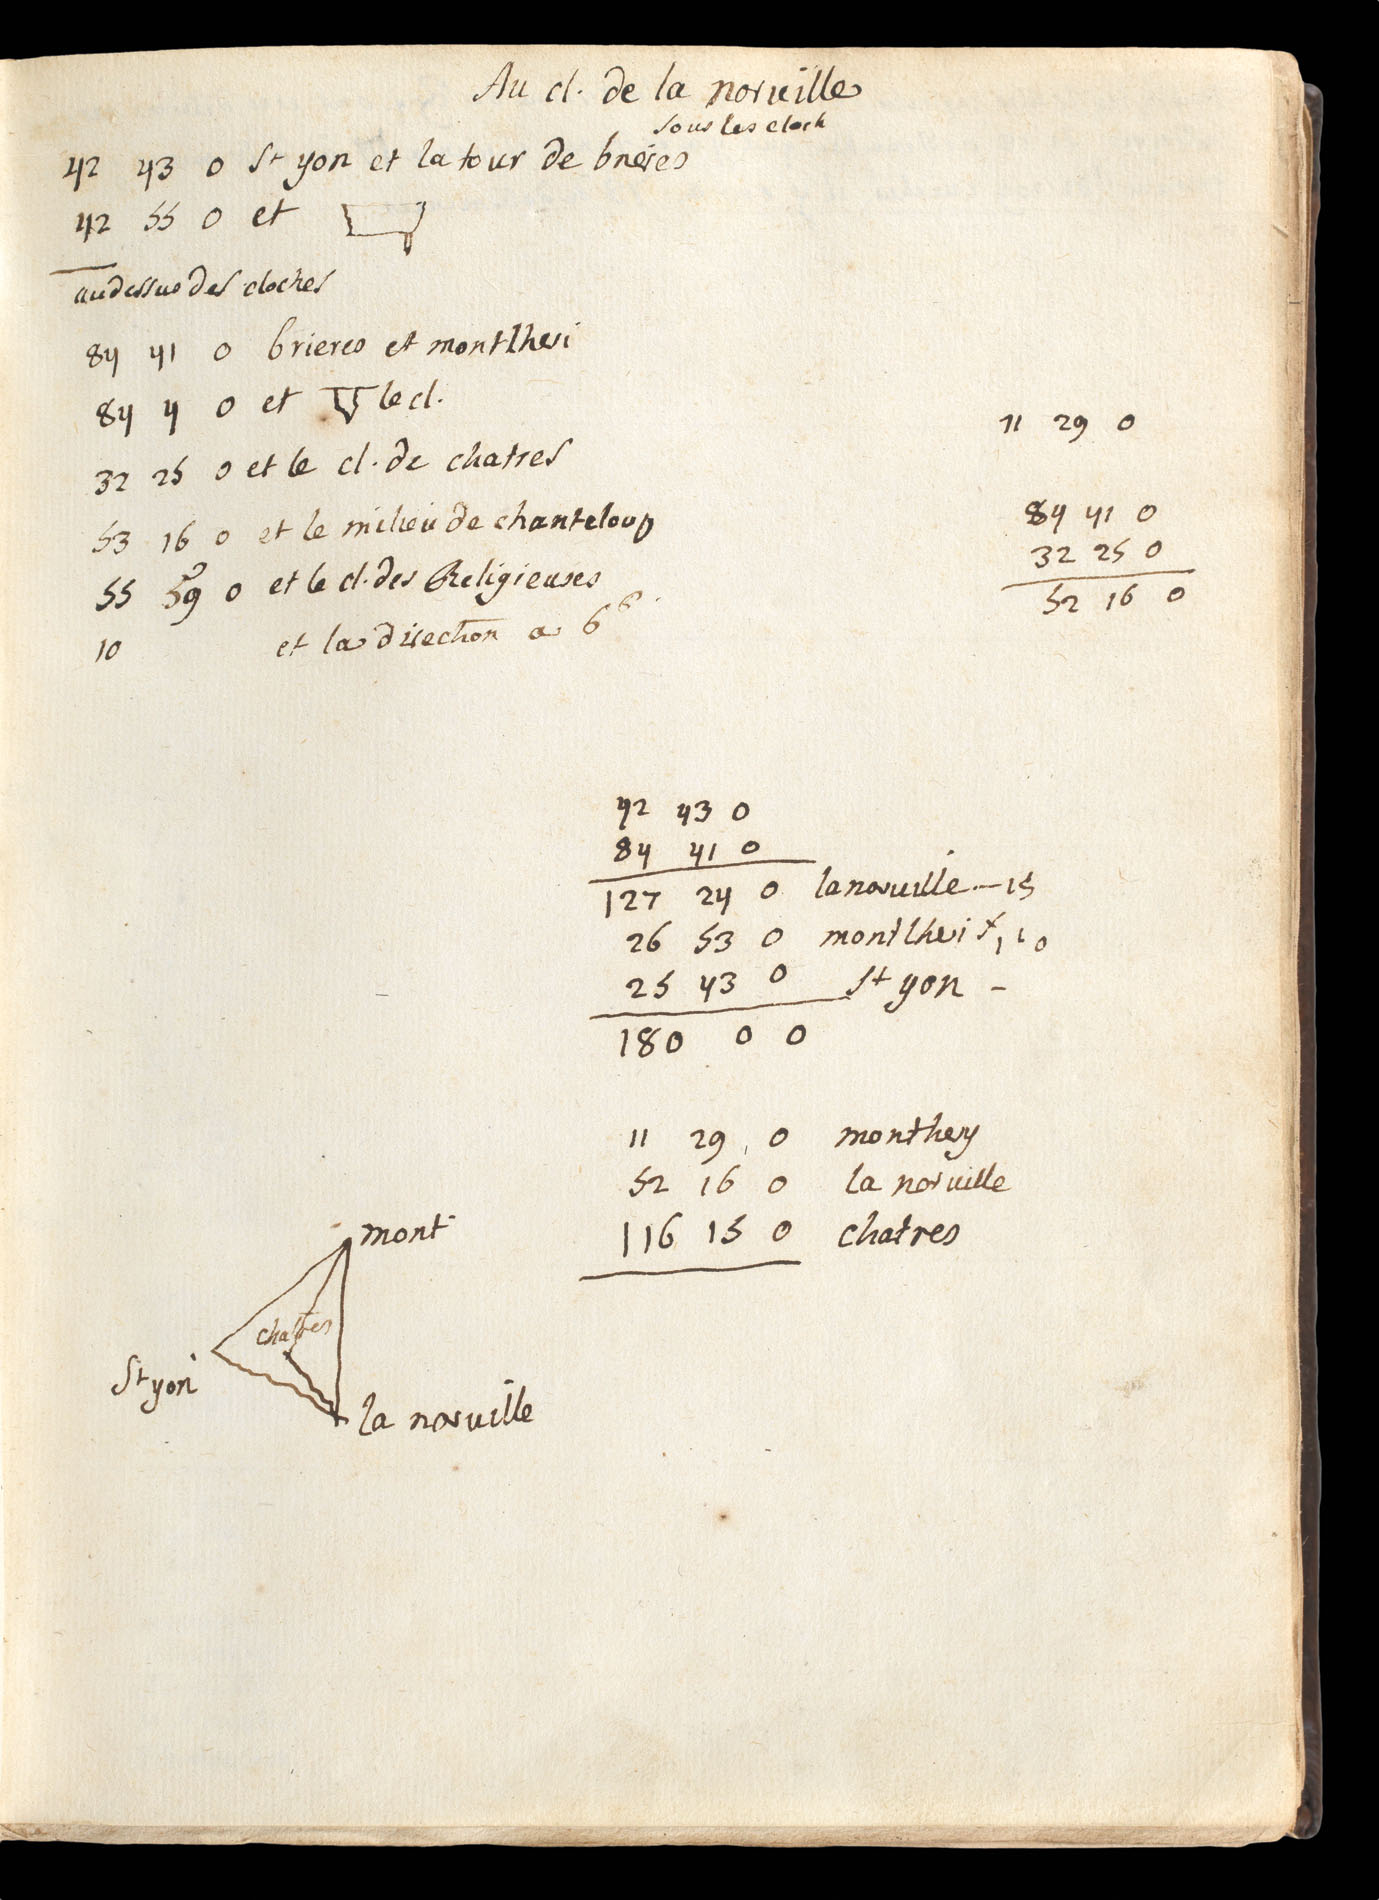 Au cl. de la norville
sous les cloch
42 43 0 St yon et la tour de brieres
42 55 0 et
au dessus des cloches
84 41 0 brieres et montlheri
84 4 0 et le cl.
32 25 0 et le cl. de chatres
53 16 0 et le milieu de chanteloup
55 59 0 et le cl. des Religieuses
10 et la direction a 6
11 29 0
84 41 0
32 25 0
52 16 0
42 43 0
84 41 0
127 24 0 la norville - 15
26 53 0 montlheri
25 43 0 St yon -
180 0 0
11 29 0 montlhery
52 16 0 la norville
116 15 0 chatres
mont
chatres
St yon
la norville